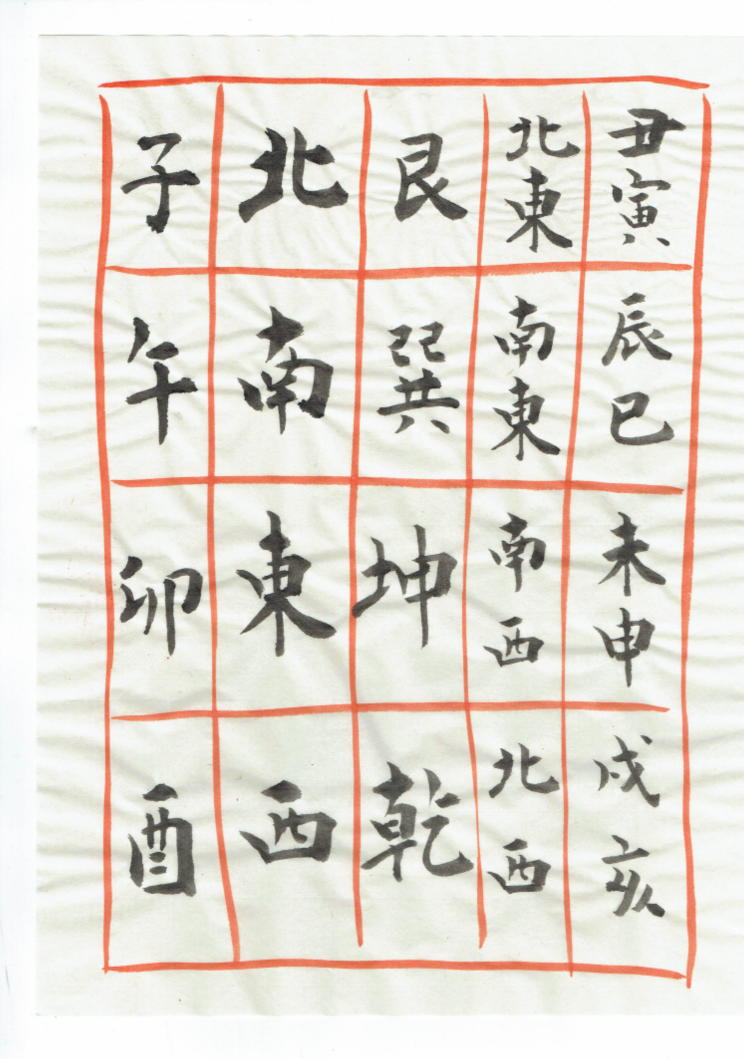 子 北 艮 北東 丑寅
午 南 巽 南東 辰巳
卯 東 坤 南西 未申
酉 西 乾 北西 戌亥